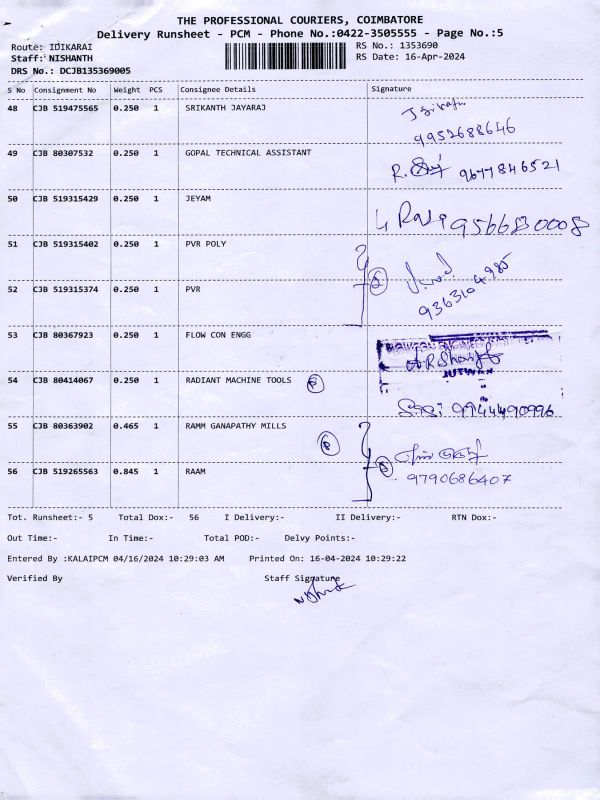 THE PROFESSIONAL COURIERS, COIMBATORE
Delivery Runsheet - PCM - Phone No.:0422-3505555 - Page No.:5
Route: IDIKARAI
RS No.: 1353690
Staff: NISHANTH
RS Date: 16-Apr-2024
DRS No.: DCJB135369005
S No Consignment No Weight PCS Consignee Details Signature
48 CJB 519475565 0.250 1 SRIKANTH JAYARAJ
9952688646
49 CJB 80307532 0.250 1 GOPAL TECHNICAL ASSISTANT
R. 9677846521
50 CJB 519315429 0.250 1 JEYAM
9566830008
51 CJB 519315402 0.250 1 PVR POLY
52 CJB 519315374 0.250 1 PVR
9363104985
53 CJB 80367923 0.250 1 FLOW CON ENGG
54 CJB 80414067 0.250 1 RADIANT MACHINE TOOLS
9744490996
55 CJB 80363902 0.465 1 RAMM GANAPATHY MILLS
56 CJB 519265563 0.845 1 RAAM
9790686407
Tot. Runsheet:- 5 Total Dox:- 56 I Delivery:- II Delivery:- RTN Dox:-
Out Time:- In Time:- Total POD:- Delvy Points:-
Entered By :KALAIPCM 04/16/2024 10:29:03 AM Printed On: 16-04-2024 10:29:22
Verified By Staff Signature